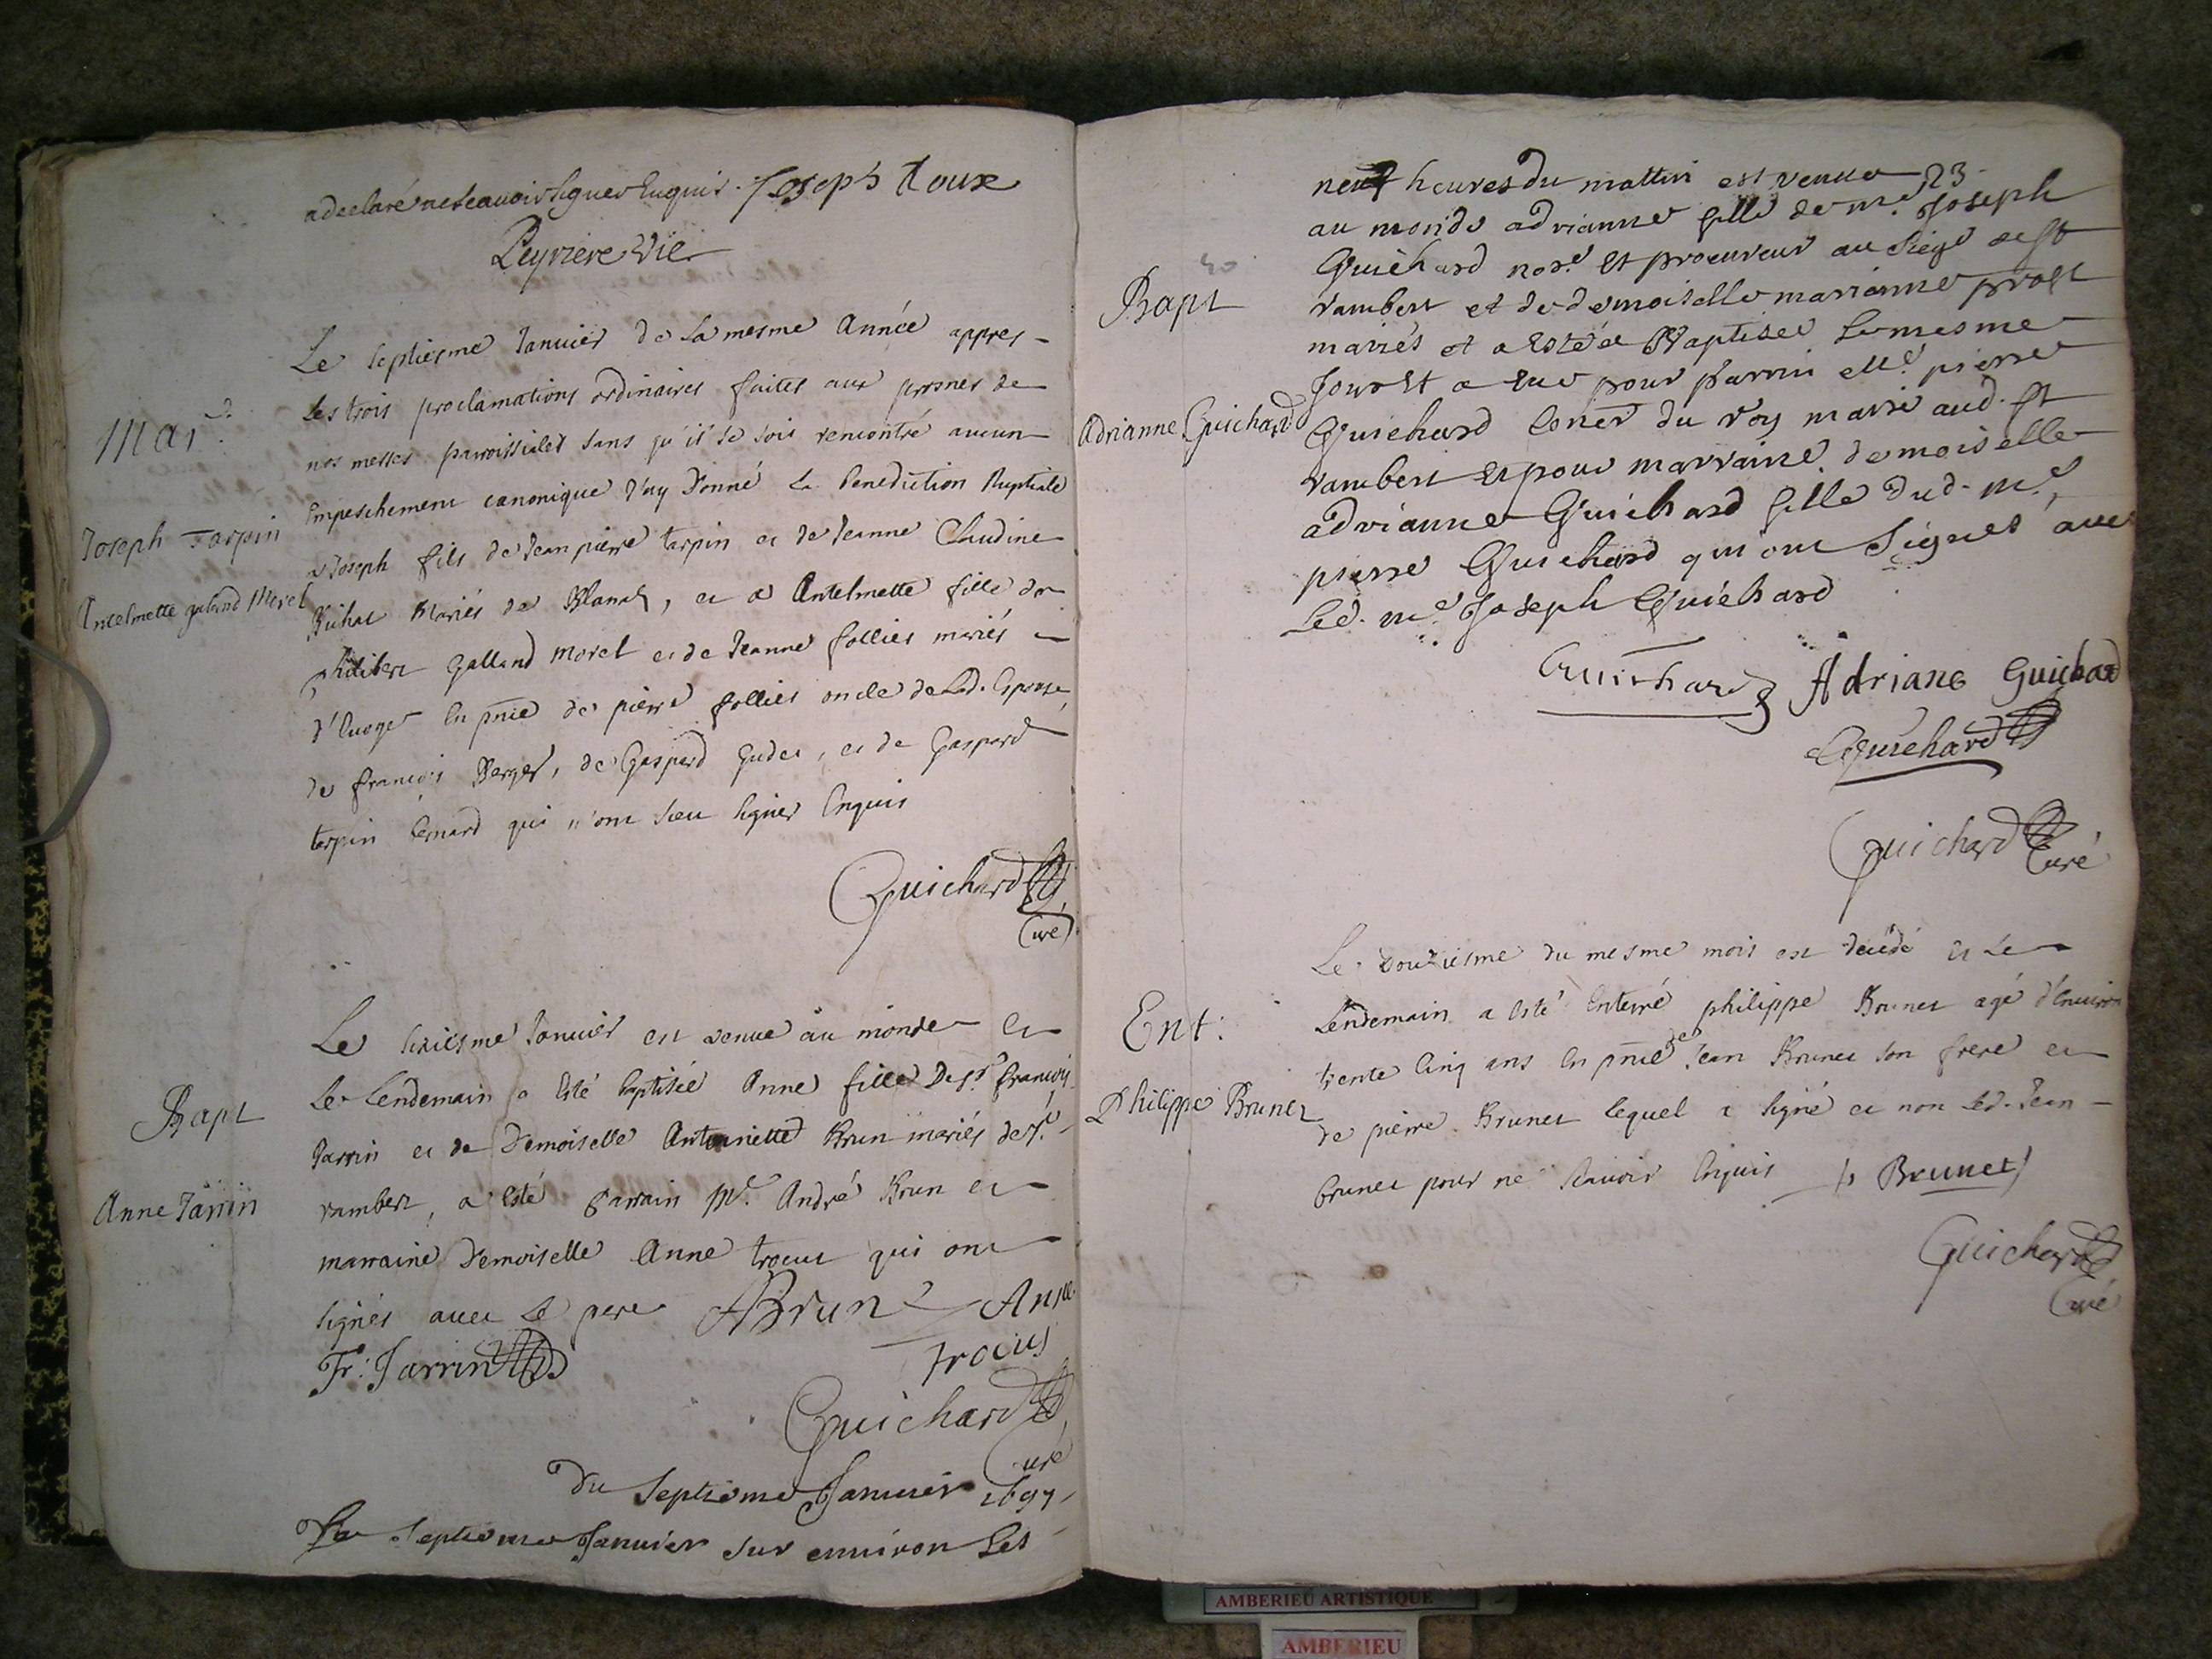 a declaré ne scavoir signer enquis. Joseph Roux
Peyriere Vic.
Mar.
Joseph Tarpin
Antelmette galand Morel
Le septiesme Januier de la mesme Année appres
les trois proclamations ordinaires faites aux prosnes de
nos messes parroissiales sans qu'il se soit rencontré aucun
Empeschement canonique J'ay Donné la Benediction Nuptiale
a Joseph fils de Jean pierre tarpin et de Jeanne Claudine
Mariés de Blanaz, et a Antelmette fille de
philibert Galland Morel et de Jeanne follier mariés
d'Euoge En pnce de pierre follier oncle de lad. Espouse
de françois Berger, de Gaspard Gudet, et de Gaspard
tarpin bernard qui n'ont sceu signer Enquis
Guichard
Curé
Bapt
Anne Jarrin
Le sixiesme Januier est venue au monde et
le lendemain a Esté baptisée Anne fille De sr. françois
Jarrin et de Demoiselle Antoinette Brun mariés de st.
rambert, a esté parrain Mr. André Brun et
marraine Demoiselle Anne trocut qui ont
signés auec le pere ABrun Anne
trocus
Fr: Jarrin
Guichard
Curé
du Septieme Januier 1697
Le septieme Januier sur enuiron Les
23
neuf heures du mattin est venue
au monde adrianne fille de me. Joseph
Guichard nore. et procureur au siege de st
rambert et de demoiselle marianne prost
mariés et a estée Baptisee le mesme
Jour et a eue pour parrin Mre. pierre
Guichard Coner du roy maire aud. st
rambert et pour marraine demoiselle
adrianne Guichard fille dud. me.
pierre Guichard qui ont signes auec
led. me. Joseph Guichard
40
Bapt
Adrianne Guichard
Guichard Adriane Guichard
Guichard
Guichard
Curé
Ent.
Philippe Brunet
Le douziesme du mesme mois est decédé et le
Lendemain a esté Enterré philippe Brunet agé d'Enuiron
trente Cinq ans En pnce de Jean Brunet son frere et
de pierre Brunet lequel a signé et non led. Jean
brunet pour ne scauoir Enquis p Brunet
Guichard
Curé
AMBERIEU ARTISTIQUE
AMBERIEU